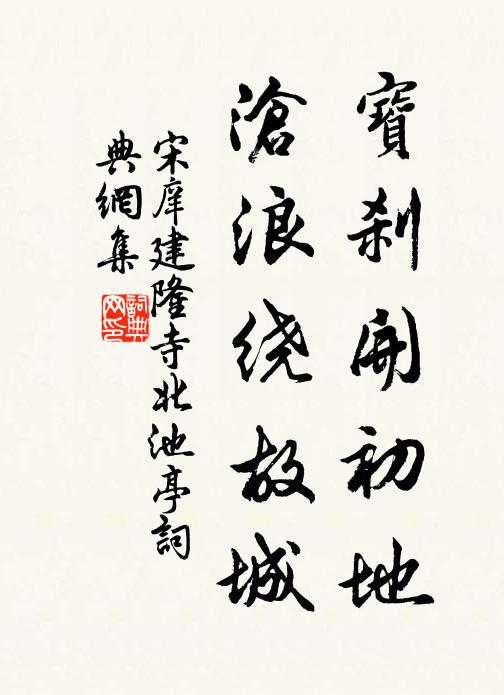 寶刹開初地
滄浪绕故城
宋庠建隆寺北池亭詞
典網集
詞典
网印